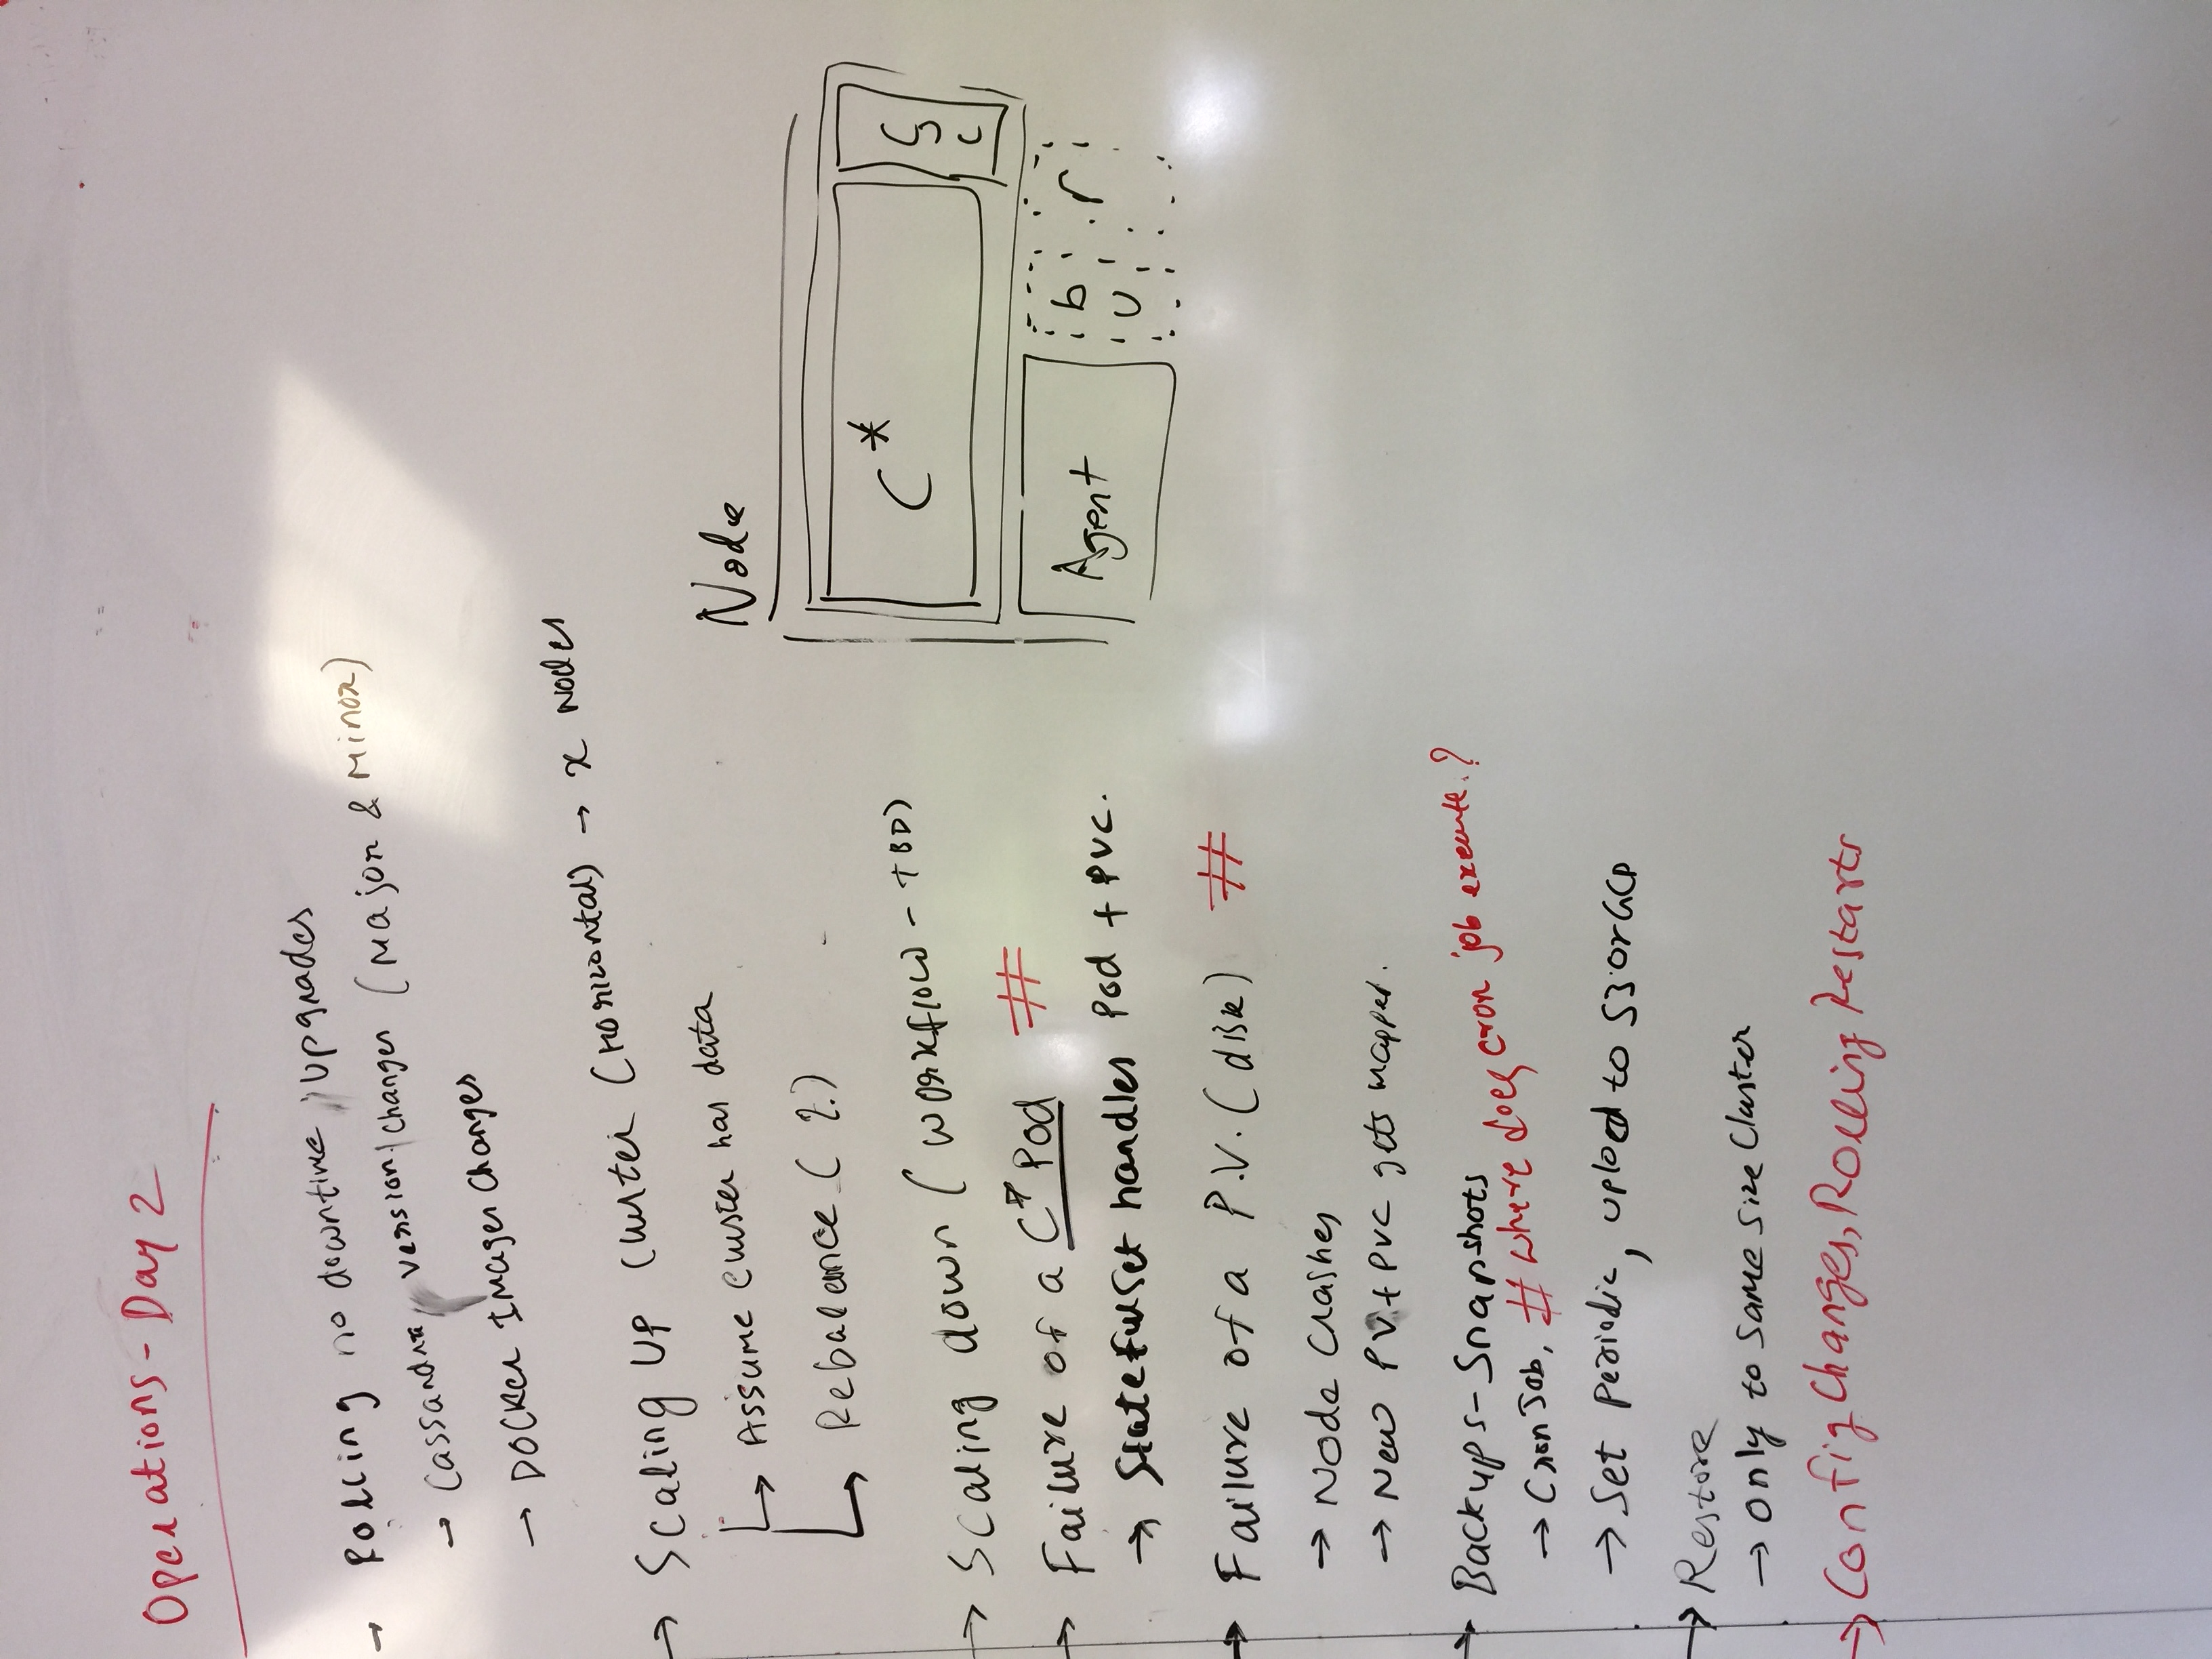 Operations - Day 2
→ Rolling no downtime upgrades
→ Cassandra version changes (Major & Minor)
→ Docker Images Changes
→ Scaling Up Cluster (Horizontal) → x Nodes
→ Assume Cluster has data
→ Rebalance (?)
→ Scaling down (Workflow - TBD)
→ Failure of a C* Pod #
→ Statefulset handles Pod + PVC.
→ Failure of a P.V. (disk) #
→ Node Crashes
→ New PV + PVC gets mapped.
→ Backups - Snapshots
→ Cron Job, # where does cron job execute.?
→ Set periodic, upload to S3 or GCP
→ Restore
→ Only to Same Size Cluster
→ Config Changes, Rolling Restarts
Node
C*
S
C
Agent
b
u
r